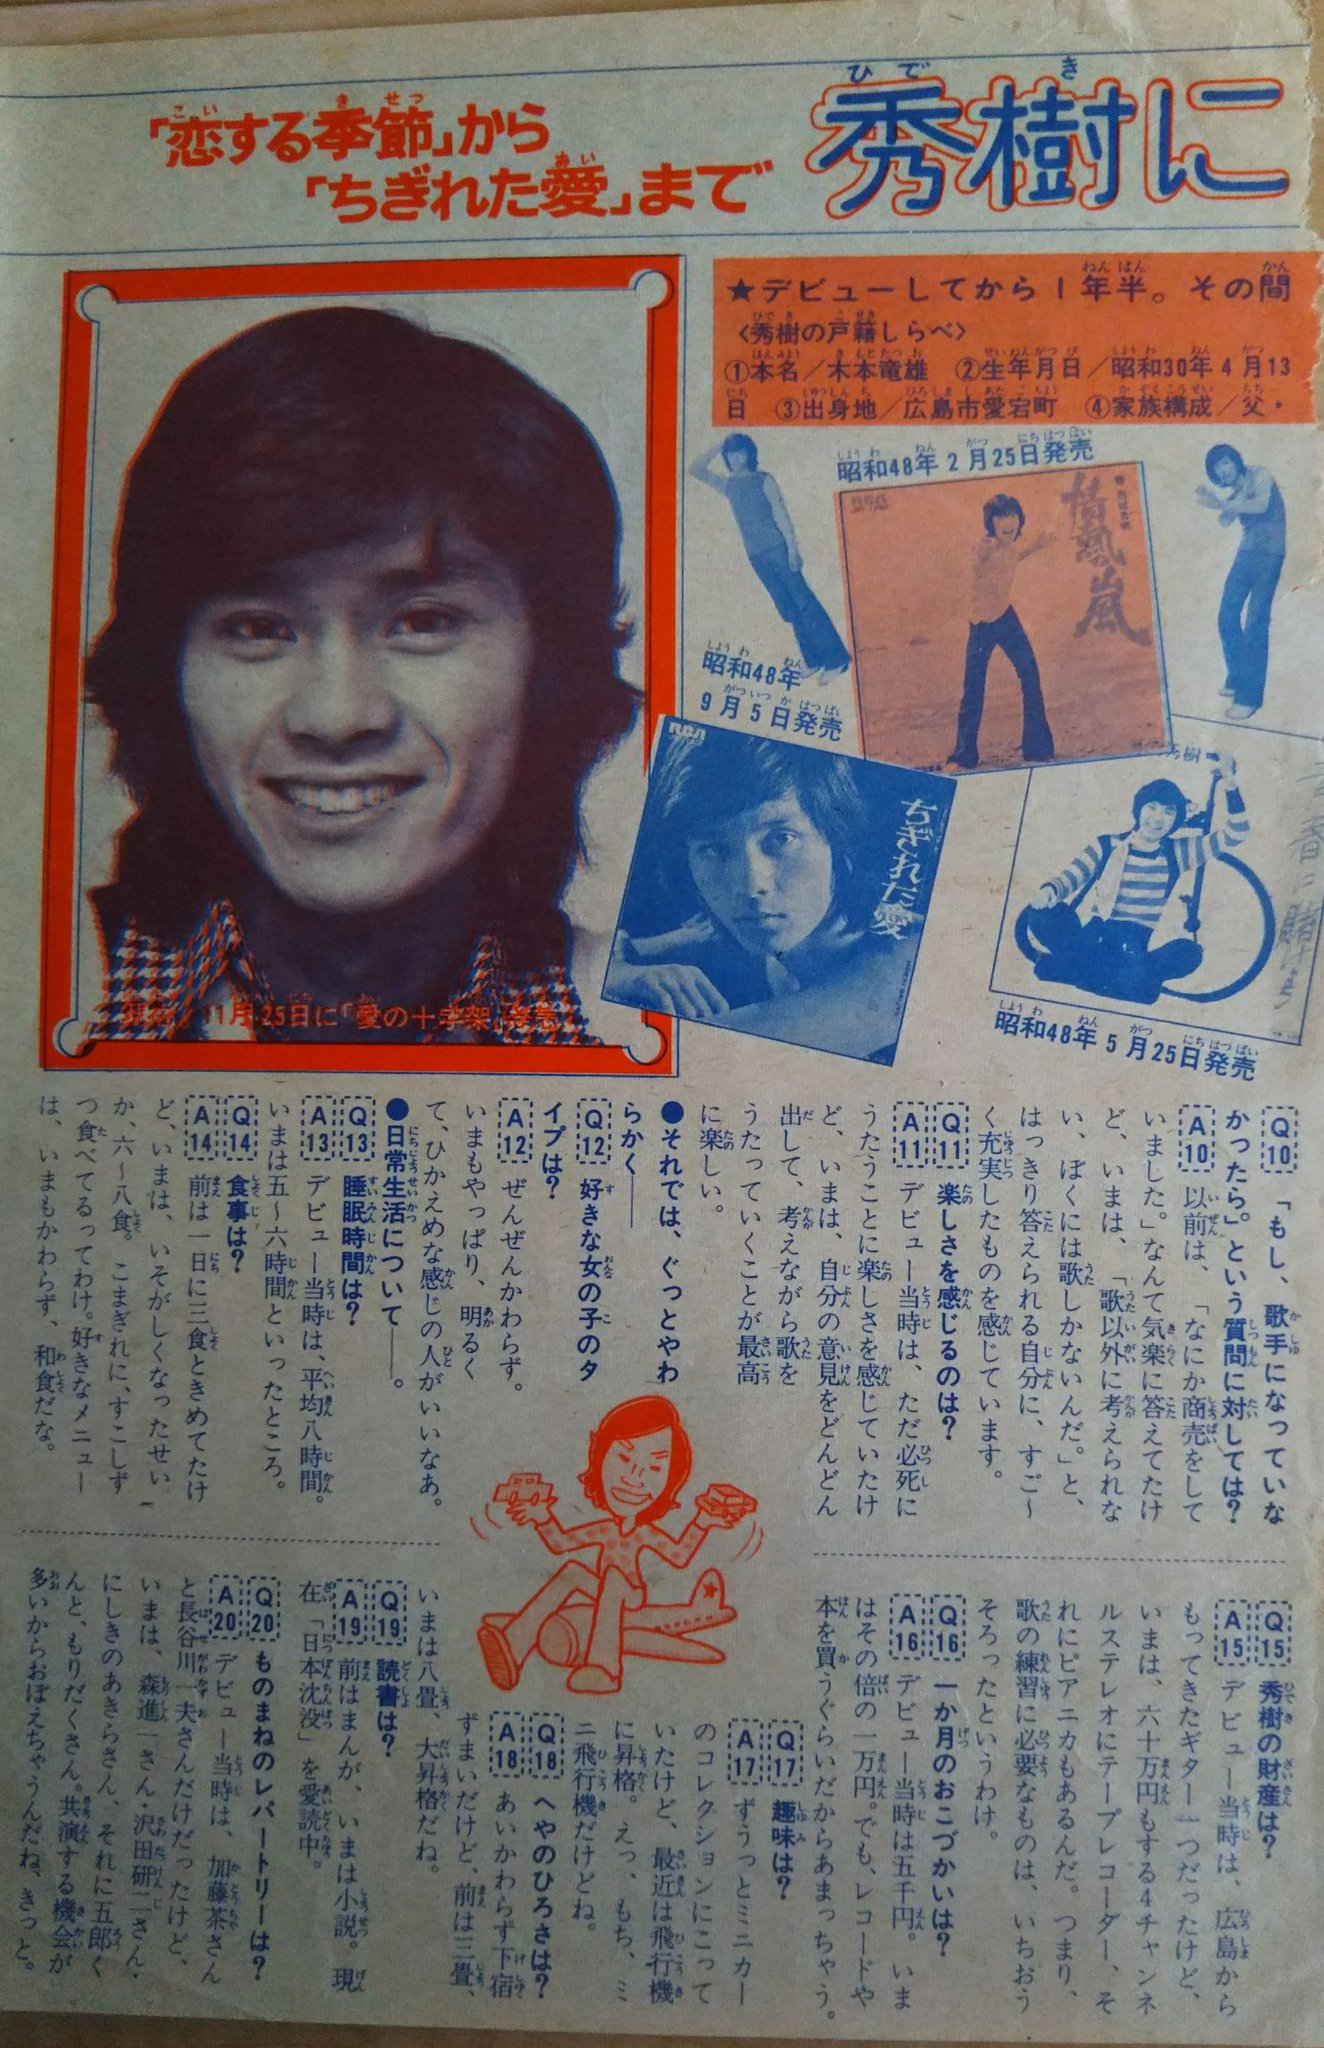 秀樹に
「恋する季節」から
「ちぎれた愛」まで
★デビューしてから1年半。その間
〈秀樹の戸籍しらべ〉
①本名/木本竜雄 ②生年月日/昭和30年4月13
日 ③出身地/広島市愛宕町 ④家族構成/父・
昭和48年2月25日発売
情熱の嵐
昭和48年
9月5日発売
RCA
ちぎれた愛
秀樹
青春に賭けよう
昭和48年5月25日発売
11月25日に「愛の十字架」発売
Q10 「もし、歌手になっていな
かったら。」という質問に対しては?
A10 以前は、「なにか商売をして
いました。」なんて気楽に答えてたけ
ど、いまは、「歌以外に考えられな
い、ぼくには歌しかないんだ。」と、
はっきり答えられる自分に、すご〜
く充実したものを感じています。
Q11 楽しさを感じるのは?
A11 デビュー当時は、ただ必死に
うたうことに楽しさを感じていたけ
ど、いまは、自分の意見をどんどん
出して、考えながら歌を
うたっていくことが最高
に楽しい。
●それでは、ぐっとやわ
らかく――
Q12 好きな女の子のタ
イプは?
A12 ぜんぜんかわらず。
いまもやっぱり、明るく
て、ひかえめな感じの人がいいなあ。
●日常生活について――。
Q13 睡眠時間は?
A13 デビュー当時は、平均八時間。
いまは五〜六時間といったところ。
Q14 食事は?
A14 前は一日に三食ときめてたけ
ど、いまは、いそがしくなったせい
か、六〜八食。こまぎれに、すこしず
つ食べてるってわけ。好きなメニュー
は、いまもかわらず、和食だな。
Q15 秀樹の財産は?
A15 デビュー当時は、広島から
もってきたギター一つだったけど、
いまは、六十万円もする4チャンネ
ルステレオにテープレコーダー、そ
れにピアニカもあるんだ。つまり、
歌の練習に必要なものは、いちおう
そろったというわけ。
Q16 一か月のおこづかいは?
A16 デビュー当時は五千円。いま
はその倍の一万円。でも、レコードや
本を買うぐらいだからあまっちゃう。
Q17 趣味は?
A17 ずうっとミニカー
のコレクションにこって
いたけど、最近は飛行機
に昇格。えっ、もち、ミ
ニ飛行機だけどね。
Q18 へやのひろさは?
A18 あいかわらず下宿
ずまいだけど、前は三畳、
いまは八畳、大昇格だね。
Q19 読書は?
A19 前はまんが、いまは小説。現
在「日本沈没」を愛読中。
Q20 ものまねのレパートリーは?
A20 デビュー当時は、加藤茶さん
と長谷川一夫さんだけだったけど、
いまは、森進一さん・沢田研二さん・
にしきのあきらさん、それに五郎く
んと、もりだくさん。共演する機会が
多いからおぼえちゃうんだね、きっと。